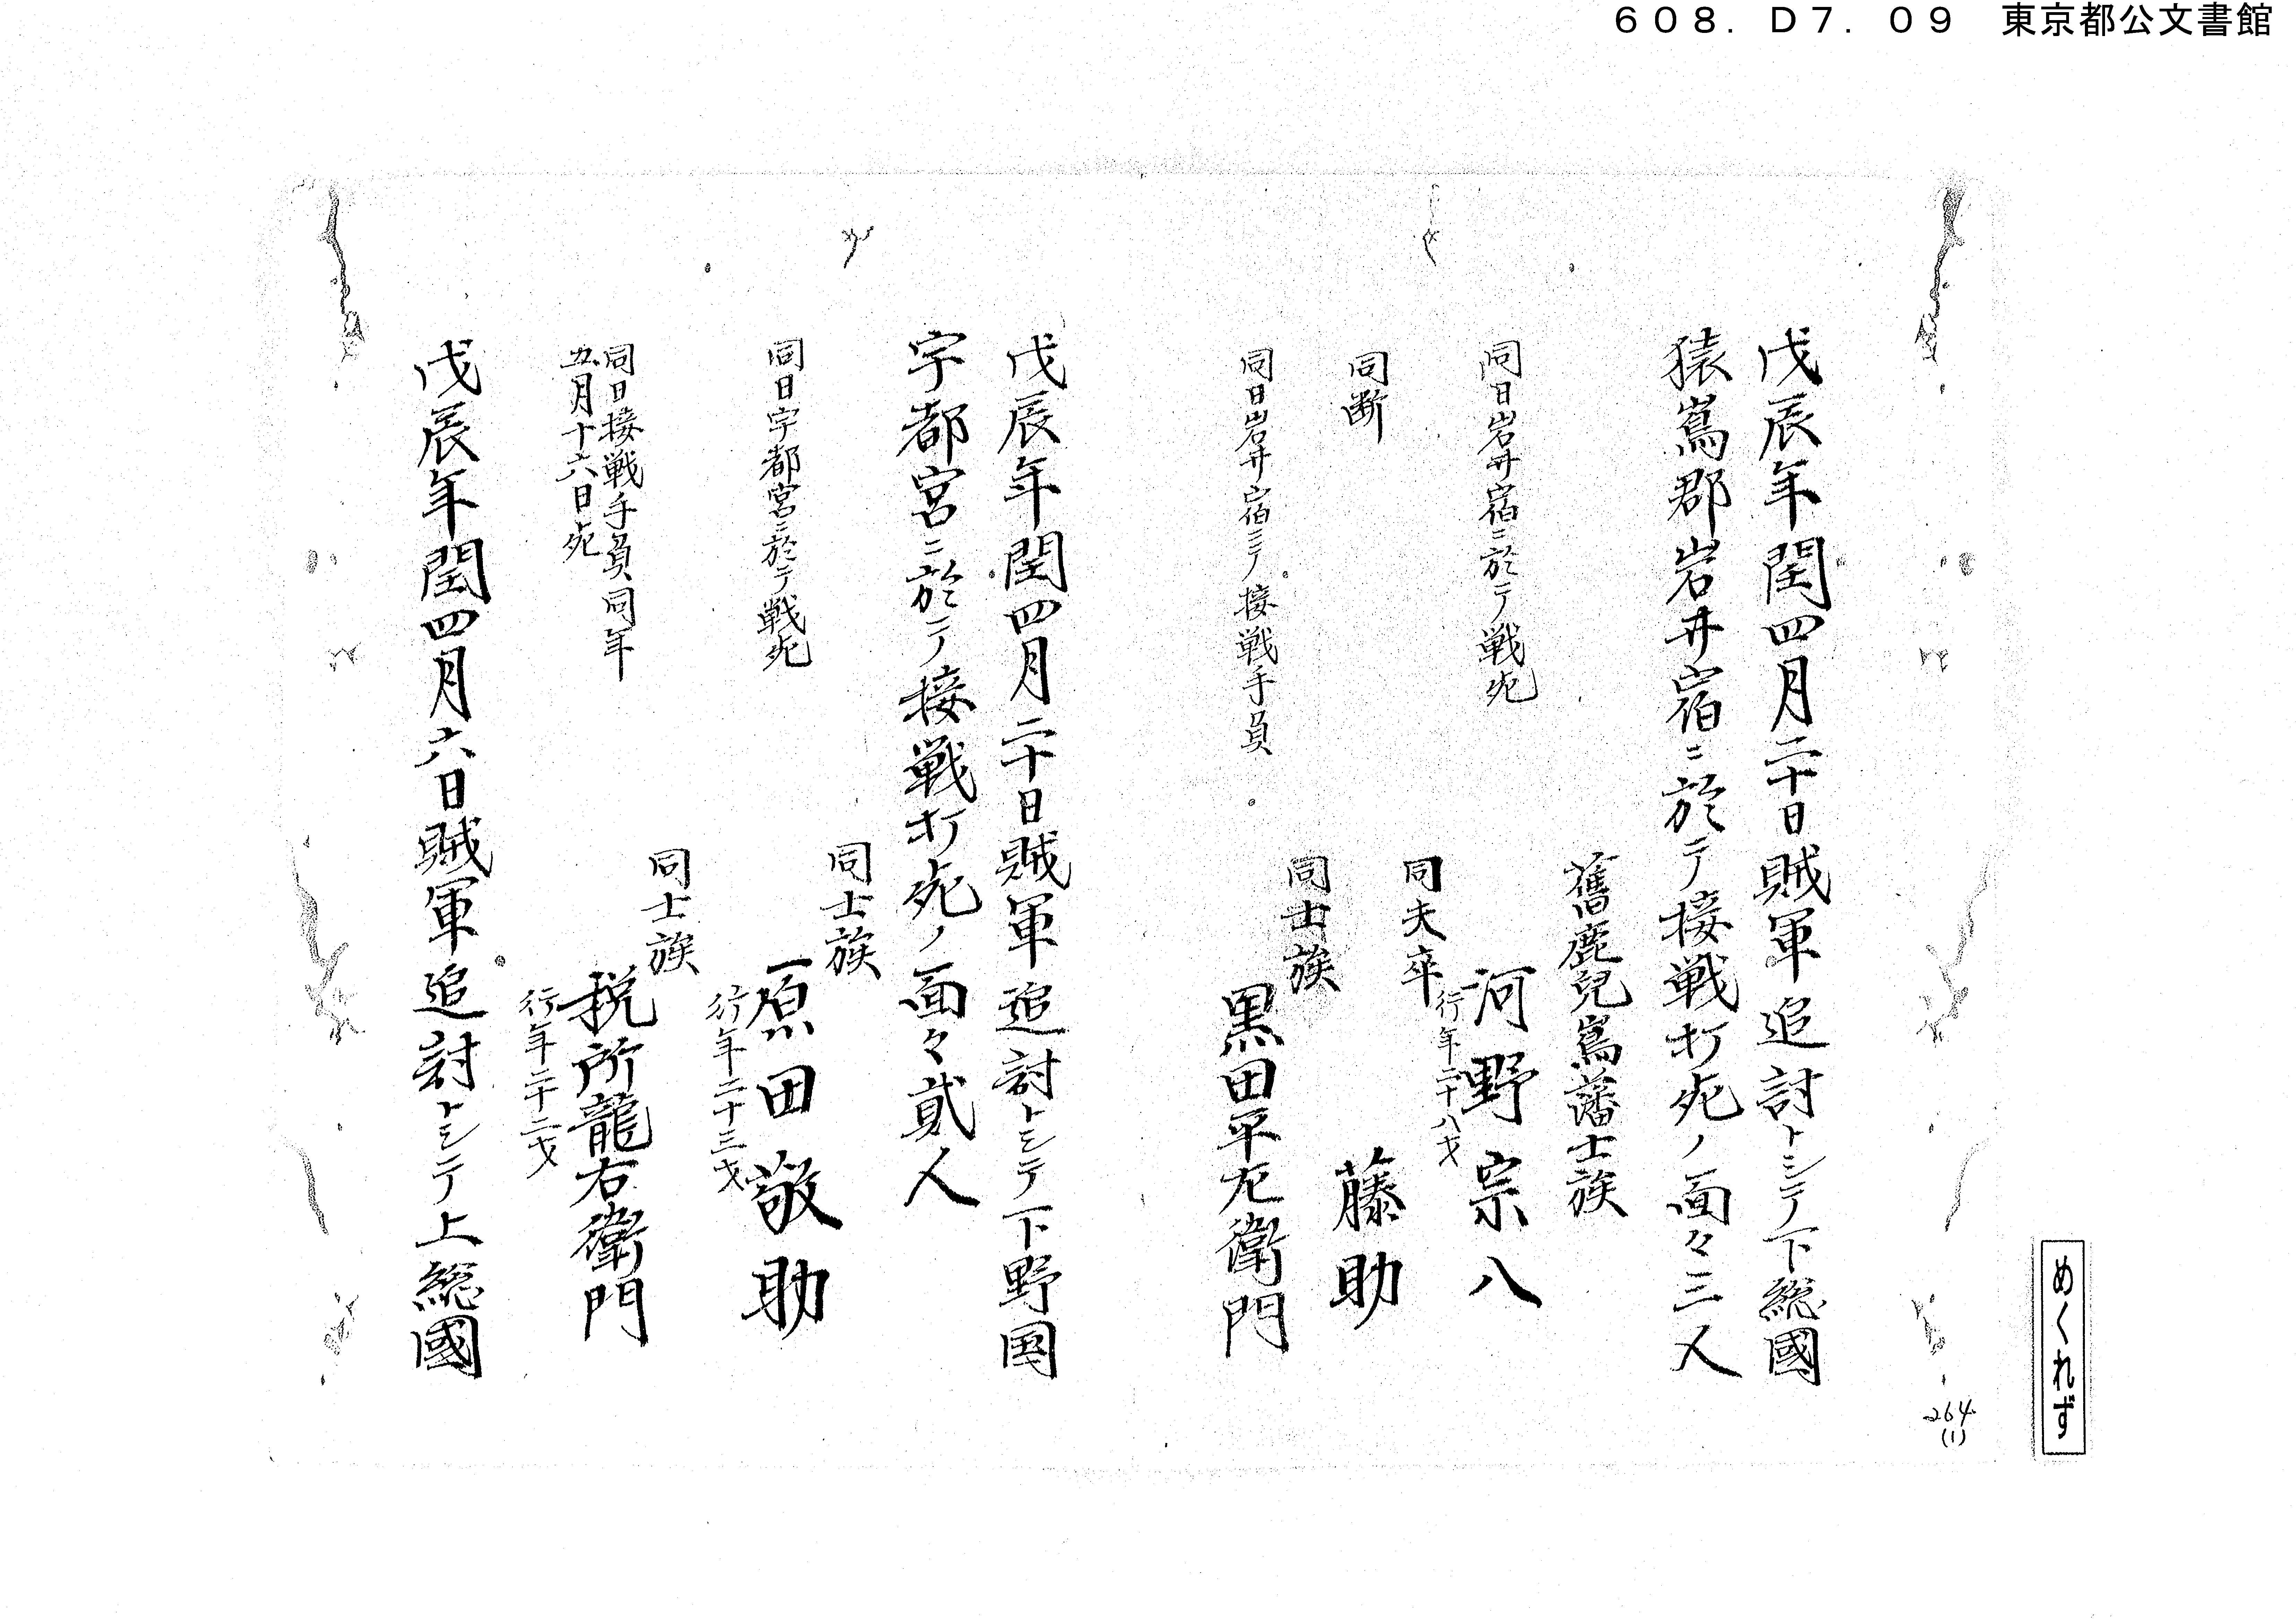 608.D7.09 東京都公文書館
戊辰年閏四月二十日賊軍追討トシテ下総國
猿嶌郡岩井宿ニ於テ接戦打死ノ面々三人
舊鹿兒嶌藩士族
同日岩井宿ニ於テ戦死
河野宗八
行年二十八才
同夫卒
同断
藤助
同士族
同日岩井宿ニテ接戦手負
黒田平左衛門
戊辰年閏四月二十日賊軍追討トシテ下野国
宇都宮ニ於テ接戦打死ノ面々貳人
同士族
同日宇都宮ニ於テ戦死
原田敬助
行年二十三才
同士族
同日接戦手負同年
五月十六日死
税所龍右衛門
行年二十二才
戊辰年閏四月六日賊軍追討トシテ上総國
めくれず
264
(1)